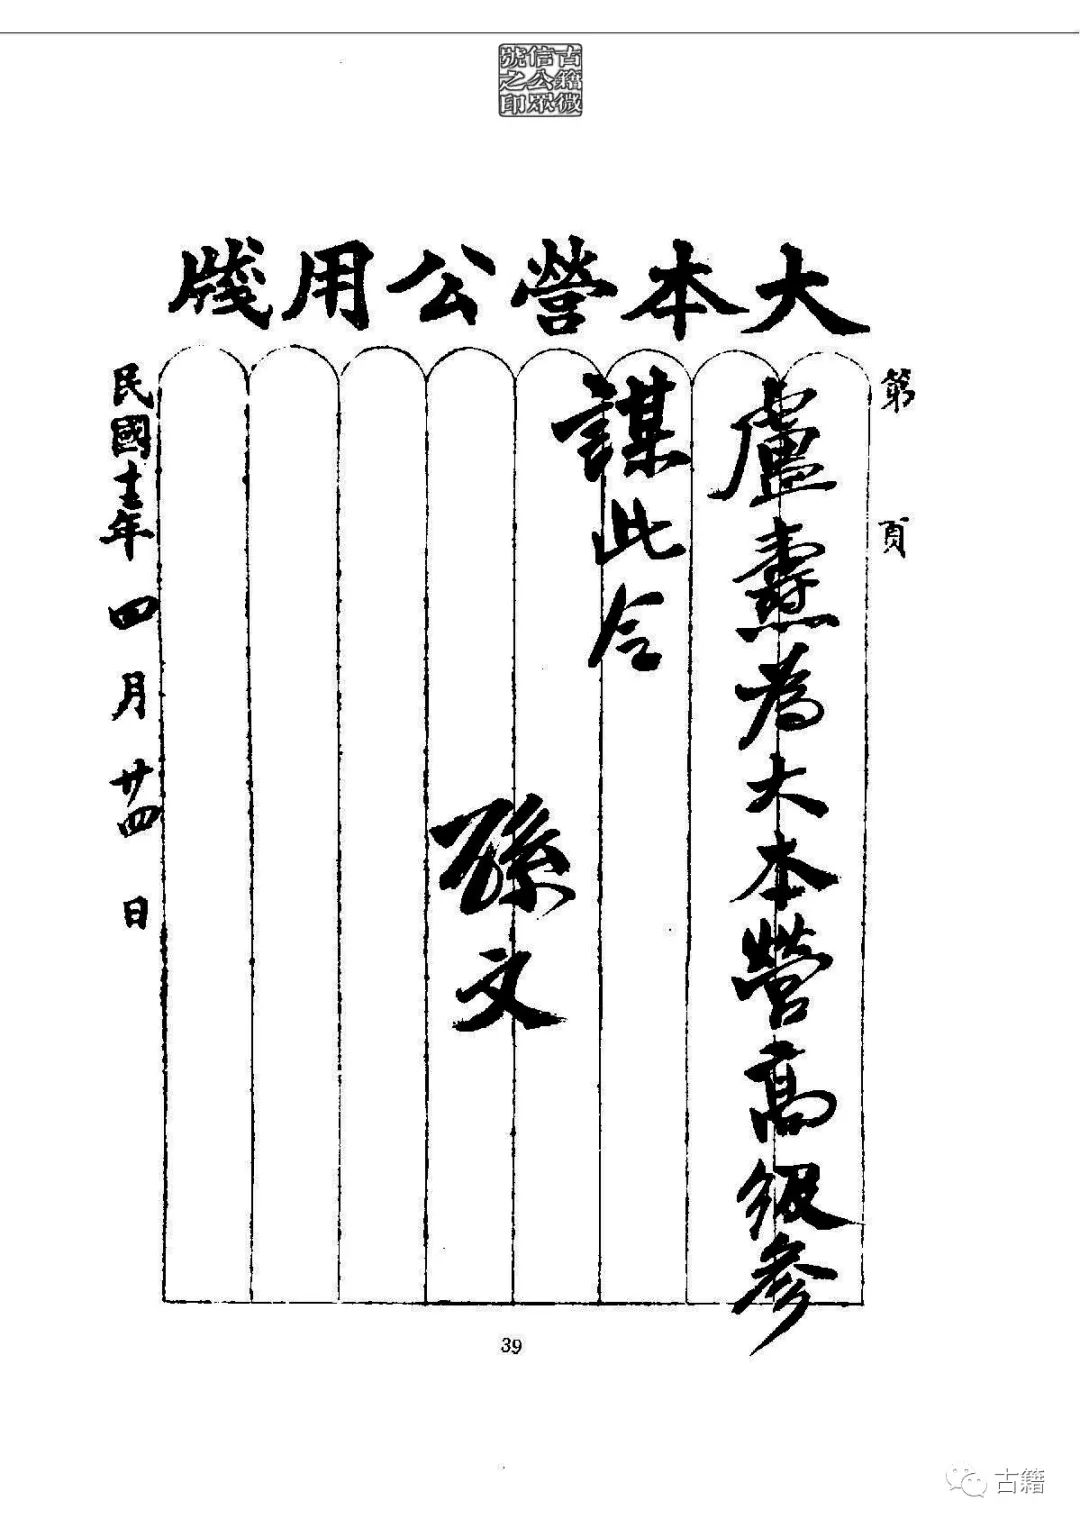 古籍微
信公眾
號之印
大本營公用牋
第 頁
盧燾為大本營高級參
謀此令
孫文
民國十三年四月廿四日
39
古籍